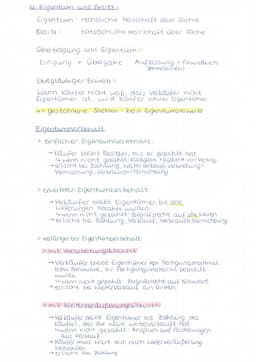 4. Eigentum und Besitz:
Eigentum: rechtliche Herrschaft über Sache
Besitz: tatsächliche Herrschaft über Sache
Übertragung von Eigentum:
Einigung + Übergabe Auflassung + Grundbuch
(Immobilien)
Gutgläubiger Erwerb:
Wenn Käufer nicht weiß, dass Verkäufer nicht
Eigentümer ist, wird Käufer
gestohlene Sachen - kein Eigentumserwerb
Eigentumsvorbehalt
einfacher Eigentumsvorbehalt
wenn nicht gezahlt:
erlischt bei Zahlung, Weiterverkauf, Verarbeitung,
Vermischung, Verbrauch/Vernichtung
erweiterter Eigentumsvorbehalt
Verkäufer bleibt Eigentümer, bis alle
Lieferungen bezahlt wurden
wenn nicht gezahlt:
erlischt bei Zahlung, Verkauf, Verbrauch/Vernichtung
verlängerter Eigentumsvorbehalt
mit Verarbeitungsklausel
Verkäufer bleibt Eigentümer von Fertigungsmaterial
bzw. Neuware, bis Fertigungsmaterial bezahlt
wurde
wenn nicht gezahlt: auf Neuware
erlischt bei Weiterverkauf an Dritten
mit Weiterveräußerungsklausel
Verkäufer bleibt Eigentümer bis Zahlung des
Käufers, der die Ware weiterverkauft hat
wenn nicht gezahlt: Anspruch auf Forderungen
aus Verkauf
Käufer muss Ware erst nach Weiterveräußerung
bezahlen
erlischt bei Zahlung